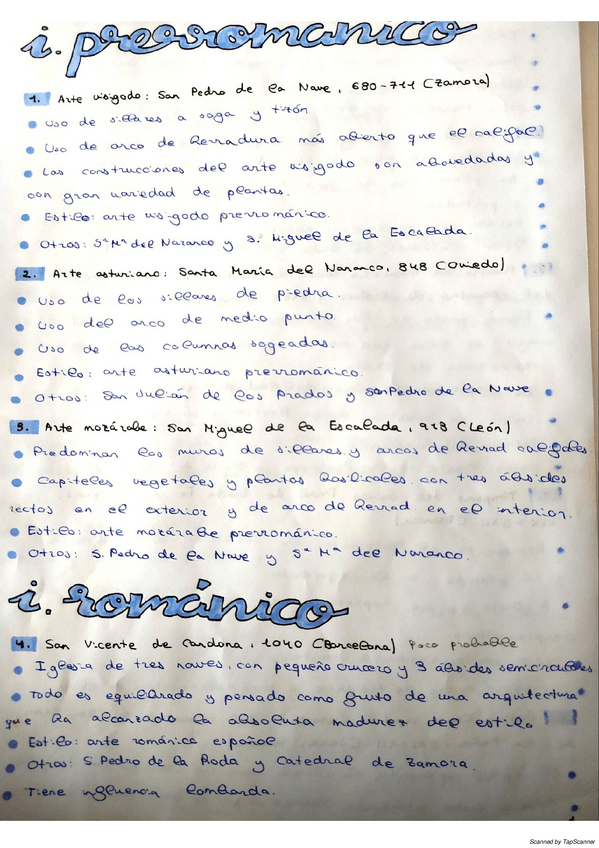 i. prerromanico
1. Arte visigodo: San Pedro de la Nave, 680-711 (Zamora)
Uso de sillares a soga y tizón
Uso de arco de herradura más abierto que el califal.
Las construcciones del arte visigodo son abovedadas y
con gran variedad de plantas.
Estilo: arte visigodo prerrománico.
Otros: Sª Mª del Naranco y S. Miguel de la Escalada.
2. Arte asturiano: Santa María del Naranco, 848 (Oviedo)
Uso de los sillares de piedra.
Uso del arco de medio punto.
Uso de las columnas sogeadas.
Estilo: arte asturiano prerrománico.
Otros: San Julián de los Prados y San Pedro de la Nave
3. Arte mozárabe: San Miguel de la Escalada, 913 (León)
Predominan los muros de sillares y arcos de herrad califales.
Capiteles vegetales y plantas basilicales con tres ábsides
rectos en el exterior y de arco de herrad en el interior.
Estilo: arte mozárabe prerrománico.
Otros: S. Pedro de la Nave y Sª Mª del Naranco.
i. románico
4. San Vicente de Cardona, 1040 (Barcelona) Poco probable
Iglesia de tres naves, con pequeño crucero y 3 ábsides semicirculares
Todo es equilibrado y pensado como fruto de una arquitectura
que ha alcanzado la absoluta madurez del estilo
Estilo: arte románico español
Otros: S. Pedro de la Roda y Catedral de Zamora.
Tiene influencia lombarda.
Scanned by TapScanner